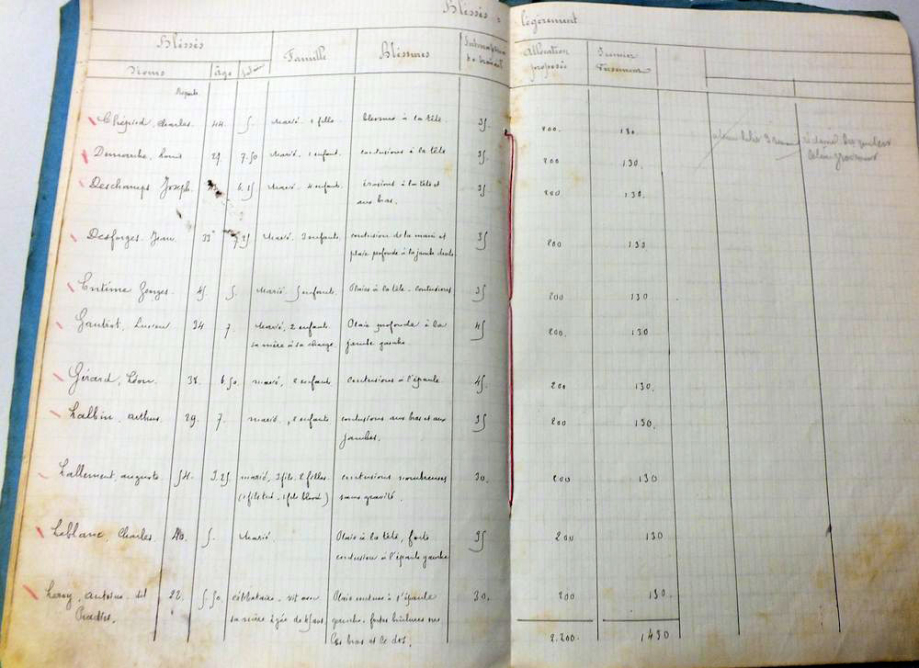 Blessés légèrement
Blessés
Noms
Age
Famille
Blessures
Allocation proposée
Premier Versement
Charles. 44. 5. Marié, 3 filles. blessures à la tête 35. 200. 130.
Demarche, Louis 29. 7.50 Marié, 1 enfant. contusions à la tête 35. 200 130.
Deschamps Joseph. 6.25 Marié. 4 enfants. érosions à la tête et 35 200 130.
aux bras.
Desforges. Jean. 33 Marié. 3 enfants. contusion de la main et 35 200 130
plaie profonde à la jambe droite
Entime Georges. 45. 5. Marié. 5 enfants. Plaies à la tête. contusions 35 200 130
Lucien 34 7. Marié, 2 enfants Plaie profonde à la 45 200. 130
sa mère à sa charge. jambe gauche.
Gérard, Léon. 38. 6.50. marié, 2 enfants contusions à l'épaule 45. 200 130.
Lalbin, arthur. 29. 7. marié, 2 enfants contusions aux bras et aux 35 200 130.
jambes.
Lallement, auguste 54. 3.25. marié, 2 fils. 2 filles. contusions nombreuses 30. 200 130
(1 fils tué. 1 fils blessé) sans gravité.
Leblanc, Charles. 40. 5. Marié. Plaie à la tête, forte 35 200 130
contusion à l'épaule gauche
Leroy, antoine. dit 22. 5.50. célibataire. vit avec Plaie à l'épaule 30. 200 130.
sa mère âgée de ans. gauche, fortes brûlures sur
les bras et le dos. 2.200. 1430